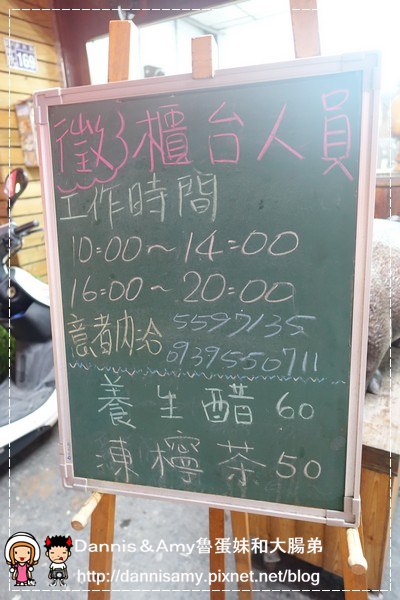 169
徵 櫃台人員
工作時間
10:00~14:00
16:00~20:00
意者內洽 5597135
0939550711
養生醋 60
凍檸茶 50
Dannis&Amy魯蛋妹和大腸弟
http://dannisamy.pixnet.net/blog